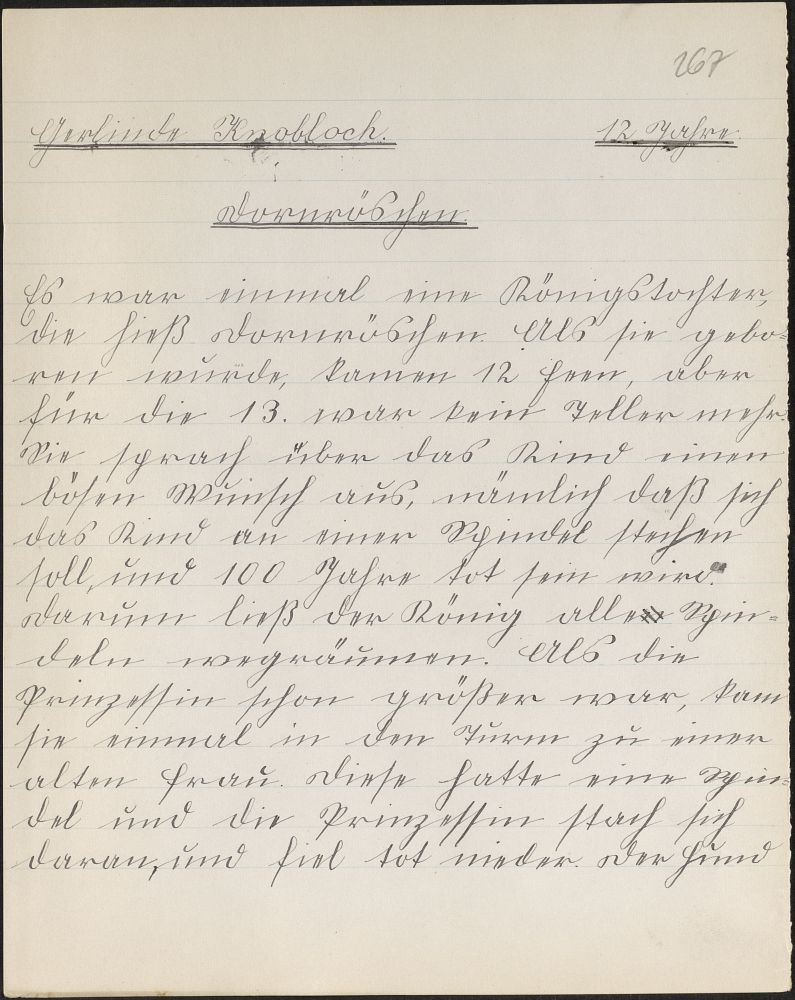 267
Gerlinde Knobloch. 12 Jahre.
Dornröschen.
Es war einmal eine Königstochter,
die hieß Dornröschen. Als sie gebo-
ren wurde, kamen 12 Feen, aber
für die 13. war kein Teller mehr.
Sie sprach über das Kind einen
bösen Wunsch aus, nämlich daß sich
das Kind an einer Spindel stechen
soll, und 100 Jahre tot sein wird.
Darum ließ der König alle Spin-
deln wegräumen. Als die
Prinzessin schon größer war, kam
sie einmal in den Turm zu einer
alten Frau. Diese hatte eine Spin-
del und die Prinzessin stach sich
daran, und fiel tot nieder. Der Hund